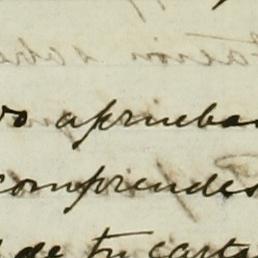 vo apruebas
comprendes
de tu carta